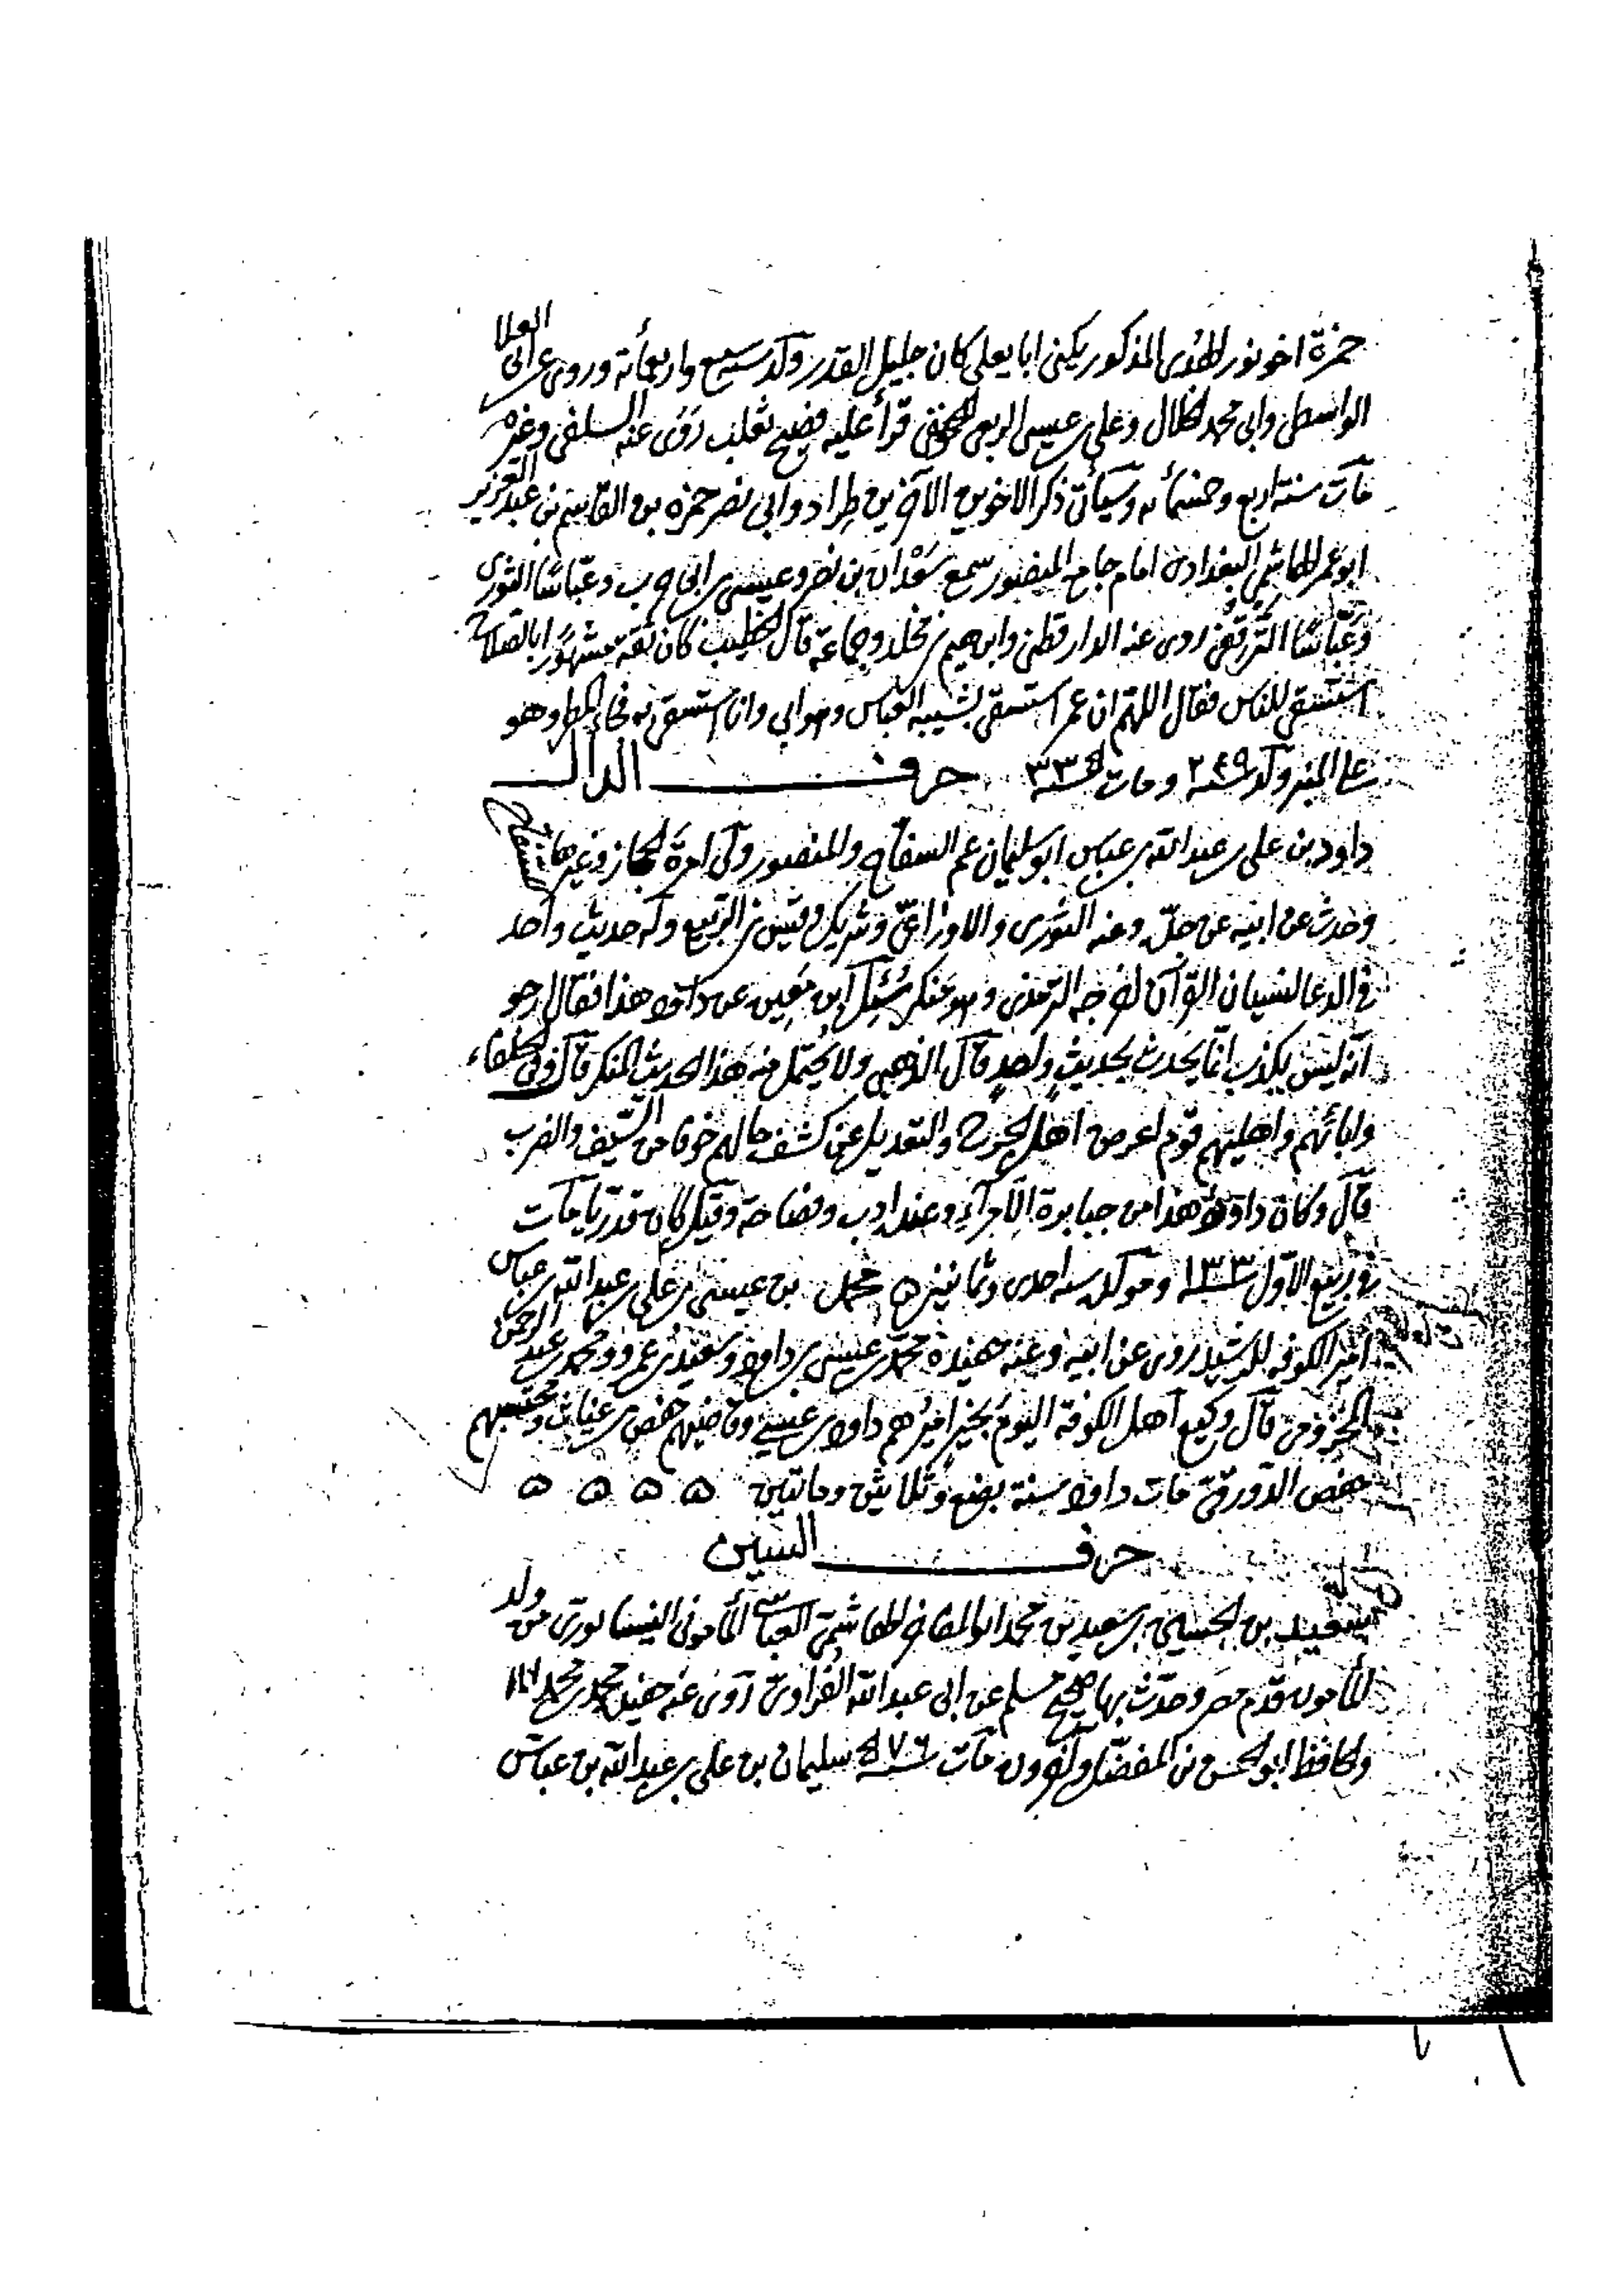 حمزة اخو نور الهدى المذكور يكنى ابا يعلى كان جليل القدر ولد سنة سبع واربعمائة وروى عن ابى العلا
الواسطى وابى محمد الخلال وعلى بن عيسى الربعى النحوى قرأ عليه فصيح ثعلب روى عنه السلفى وغيره
مات سنة اربع وخمسمائه وسيأتى ذكر الاخوين الآخرين طراد وابى نصر حمزه بن القاسم بن عبد العزيز
ابو عمر الهاشمى البغدادى امام جامع المنصور سمع سعدان بن نصر وعيسى بن ابى حرب وعباسا الدورى
وعباسا الترقفى روى عنه الدارقطنى وابرهيم بن مخلد وجماعة قال الخطيب كان ثقة مشهورا بالصلاح
استسقى للناس فقال اللهم ان عمر استسقى بشيبة العباس وهو ابى وانا استسقى به فجاء المطر وهو
على المنبر ولد سنة ٢٤٩ ومات سنة ٣٣٥ حرف الدال
داود بن على بن عبد الله بن عباس ابو سليمان عم السفاح والمنصور ولى امرة الحجاز وغيرها
وحدث عن ابيه عن جده وعنه الثورى والاوزاعى وشريك وقيس بن الربيع وله حديث واحد
فى الدعا لنسيان القرآن اخرجه الترمذى وهو منكر سئل ابن معين عن داود هذا فقال ارجو
انه ليس يكذب انما يحدث بحديث واحد قال الذهبى ولا يحتمل منه هذا الحديث المنكر قال وفى الخلفاء
وابائهم واهليهم قوم اعرض اهل الجرح والتعديل عن كشف حالهم خوفا من السيف والضرب
قال وكان داود هذا من جبابرة الامراء وعنده ادب وفصاحة وقيل كان قدريا مات
فى ربيع الاول سنة ١٣٣ ومولده سنة احدى وثمانين ه محمد بن عيسى بن على بن عبد الله بن عباس
امير الكوفه للرشيد روى عن ابيه وعنه حفيده محمد بن عيسى بن داود وسعيد بن عمرو ومحمد بن عبد الرحمن
المخزومى قال وكيع اهل الكوفة اليوم بخير اميرهم داود بن عيسى وقاضيهم حفص بن غياث ومحتسبهم
حفص الدورقى مات داود سنة بضع وثلاثين ومائتين ه ه ه ه
حرف السين
سعيد بن الحسين بن سعيد بن محمد ابو المفاخر الهاشمى العباسى المأمونى النيسابورى من ولد
المأمون قدم مصر وحدث بها صحيح مسلم عن ابى عبد الله الفراوى روى عنه حفيده محمد بن محمد
والحافظ ابو الحسن بن المفضل واخرون مات سنة ٥٧٦ سليمان بن على بن عبد الله بن عباس